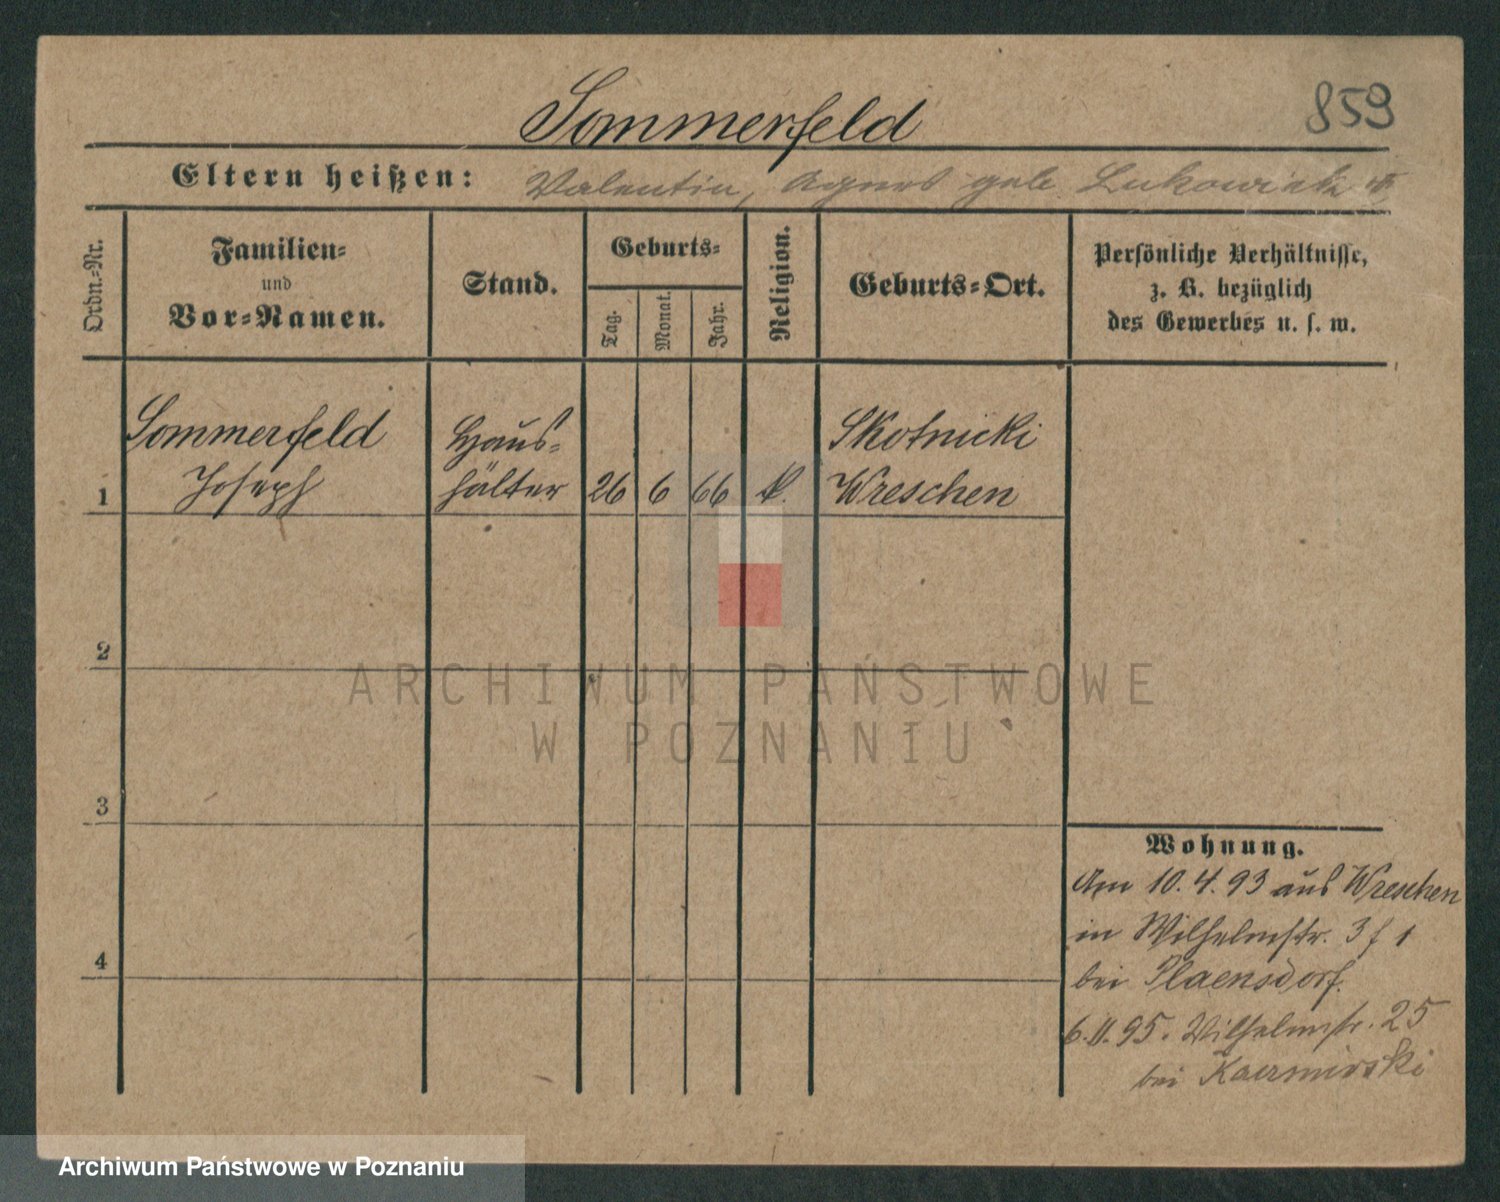 859
Sommerfeld
Eltern heißen: Valentin, Agnes geb
Ordn.-Nr.
Familien-
und
Vor-Namen.
Stand.
Geburts-
Tag.
Monat.
Jahr.
Religion.
Geburts-Ort.
Persönliche Verhältnisse,
z. B. bezüglich
des Gewerbes u. s. w.
Sommerfeld Haus- Skotnicki
1 Joseph hälter 26 6 66 k. Wreschen
2
3
4
ARCHIWUM PAŃSTWOWE
W POZNANIU
Wohnung.
Am 10.4.93 aus Wreschen
in Wilhelmstr. 3 f 1
bei Plaensdorf.
6.II.95. Wilhelmstr. 25
bei
Archiwum Państwowe w Poznaniu